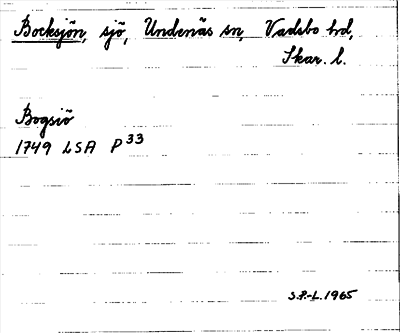 Bocksjön, sjö, Undenäs sn, Vadsbo hd,
Skar. l.
Bogsiö
1749 LSA P33
S.P.-L. 1965